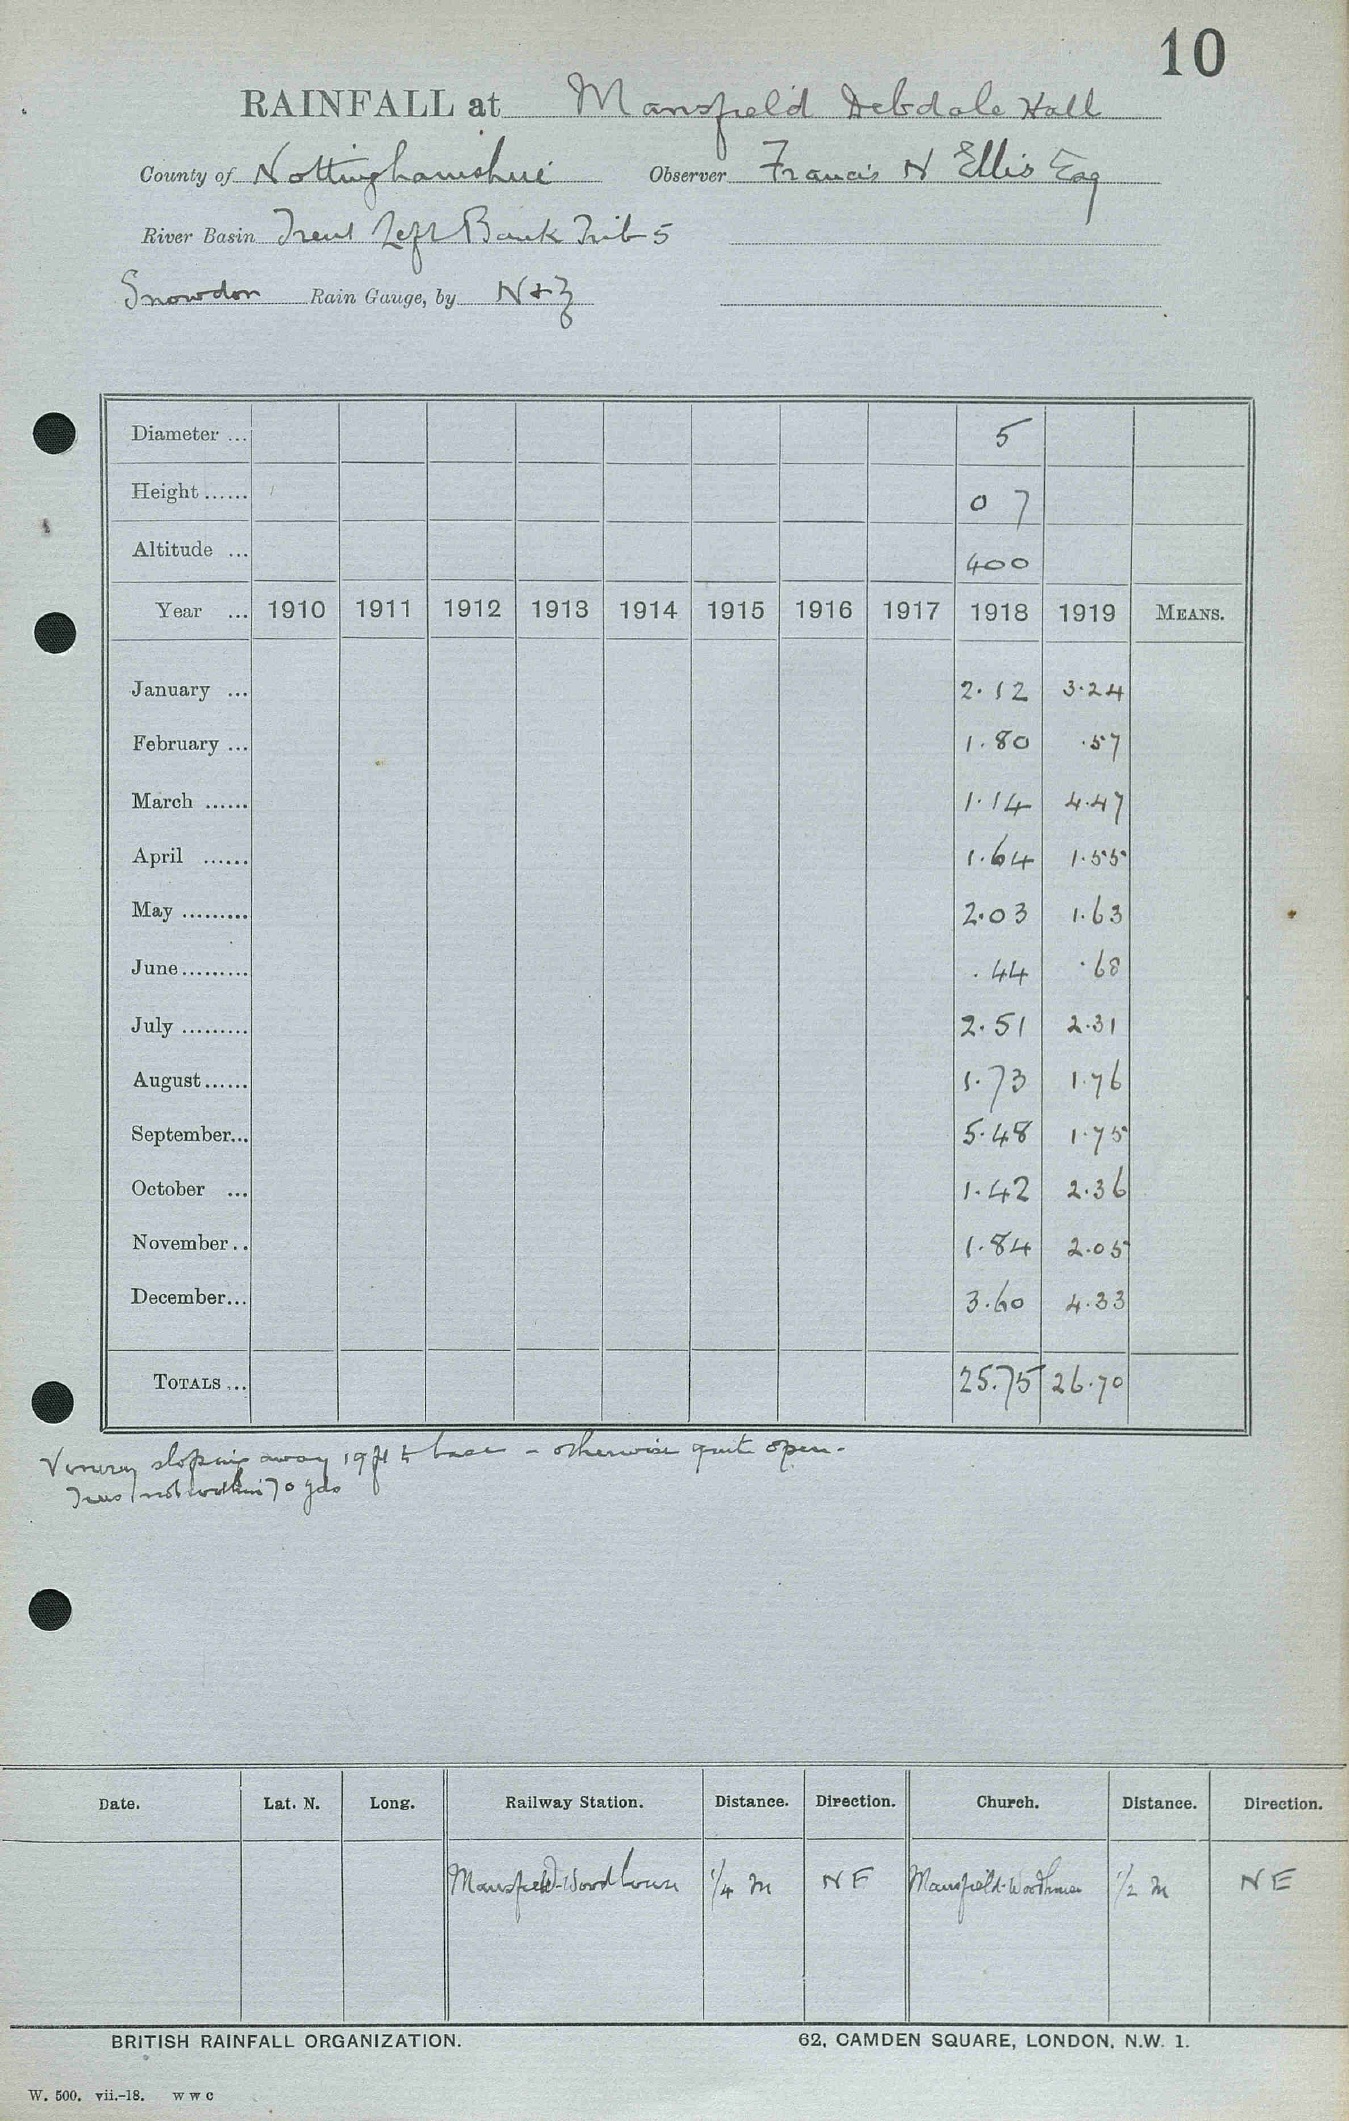 10
RAINFALL at Mansfield Debdale Hall
County of Nottinghamshire Observer Francis N Ellis Esq
River Basin Trent Left Bank Trib 5
Snowdon Rain Gauge, by N & Z
Diameter ... 5
Height ...... 0 7
Altitude ... 400
Year ... 1910 1911 1912 1913 1914 1915 1916 1917 1918 1919 MEANS.
January ... 2.12 3.24
February ... 1.80 .57
March ...... 1.14 4.47
April ...... 1.64 1.55
May ......... 2.03 1.63
June ......... .44 .68
July ......... 2.51 2.31
August ...... 1.73 1.76
September... 5.48 1.75
October ... 1.42 2.36
November .. 1.84 2.05
December... 3.60 4.33
TOTALS ... 25.75 26.70
Vinery sloping away 19 ft to base - otherwise quite open.
Trees not within 70 yds
Date. Lat. N. Long. Railway Station. Distance. Direction. Church. Distance. Direction.
Mansfield-Woodhouse 1/4 m NE Mansfield-Woodhouse 1/2 m NE
BRITISH RAINFALL ORGANIZATION. 62, CAMDEN SQUARE, LONDON, N.W. 1.
W. 500. vii.-18. W W C